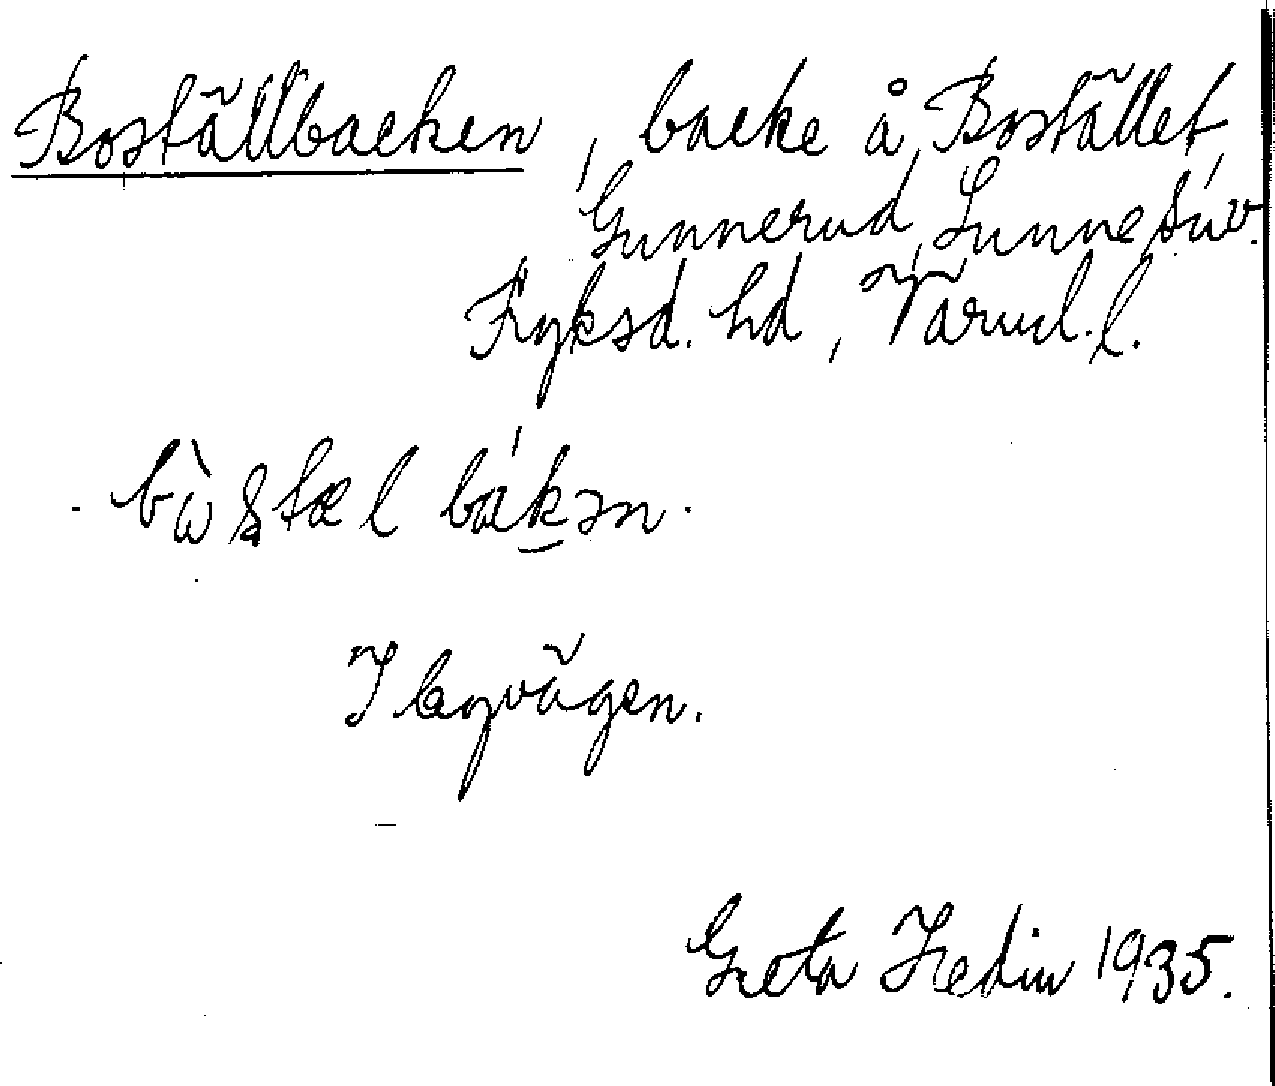 Boställbacken, backe å Bostället,
Gunnerud, Sunne sn v.
Fryksd. hd, Värml. l.
bὼstæl bákən.
I byvägen.
Greta Hedin 1935.